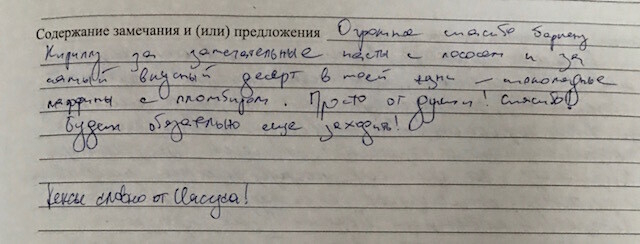 Содержание замечания и (или) предложения Огромное спасибо бармену
Кириллу за замечательные пасты с лососем и за
самый вкусный десерт в моей жизни – шоколадные
маффины с пломбиром. Просто от души! Спасибо!
Будем обязательно еще заходить!
Кексы словно от Иисуса!